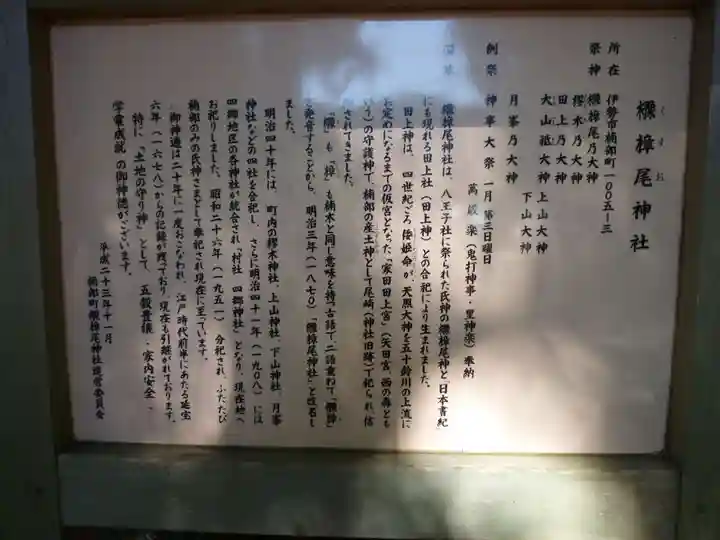 くすお
櫲樟尾神社
所在 伊勢市楠部町一〇〇五ー三
祭神 櫲樟尾乃大神
樛木乃大神
田上乃大神
大山祇大神 上山大神
下山大神
月峯乃大神
例祭 神事大祭 一月 第三日曜日
萬歳楽(鬼打神事・里神楽)奉納
櫲樟尾神社は、八王子社に祭られた氏神の櫲樟尾神と「日本書紀」
にも現れる田上社(田上神)との合祀により生まれました。
田上神は、四世紀ごろ倭姫命が、天照大神を五十鈴川の上流に
お定めになるまでの仮宮となった「家田田上宮」(矢田宮、西の森とも
いう)の守護神で、楠部の産土神として尾崎(神社旧跡)で祀られ、信
されてきました。
「櫲」も「樟」も楠木と同じ意味を持つ古語で、二語重ねて「櫲樟」
と発音することから、明治三年(一八七〇)「櫲樟尾神社」と改名し
ました。
明治四十年には、町内の樛木神社、上山神社、下山神社、月峯
神社などの四社を合祀し、さらに明治四十一年(一九〇八)には
四郷地区の各神社が統合され「村社 四郷神社」となり、現在地へ
お祀りしました。昭和二十六年(一九五一)分祀され、ふたたび
楠部のみの氏神さまとして奉祀され現在に至っています。
御神遷は二十年に一度おこなわれ、江戸時代前半にあたる延宝
六年(一六七八)からの記録が残っており、現在も引継がれております。
特に、「土地の守り神」として、五穀豊穣、家内安全、
学業成就の御神徳がございます。
平成二十三年十一月
楠部町櫲樟尾神社運営委員会